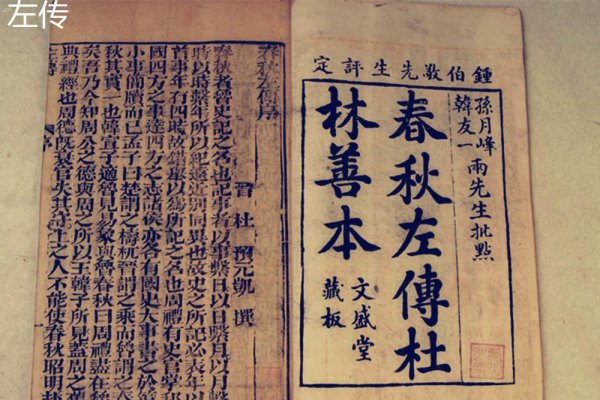 左传
鍾伯敬先生評定
孫月峰
韓友一
兩先生批點
春秋左傳杜
林善本
文盛堂
藏板
春秋左傳序
晉 杜 預元凱 撰
春秋者魯史記之名也記事者以事繫日以日繫月以月繫
時以時繫年所以紀遠近別同異也故史之所記必表年以
首事年有四時故錯舉以爲所記之名也周禮有史官掌邦
國四方之事達四方之志諸侯亦各有國史大事書之於策
小事簡牘而已孟子曰楚謂之檮杌晉謂之乘而魯謂之春
秋其實一也韓宣子適魯見易象與魯春秋曰周禮盡在魯
矣吾乃今知周公之德與周之所以王韓子所見蓋周之舊
典禮經也周德旣衰官失其守上之人不能使春秋昭明赴